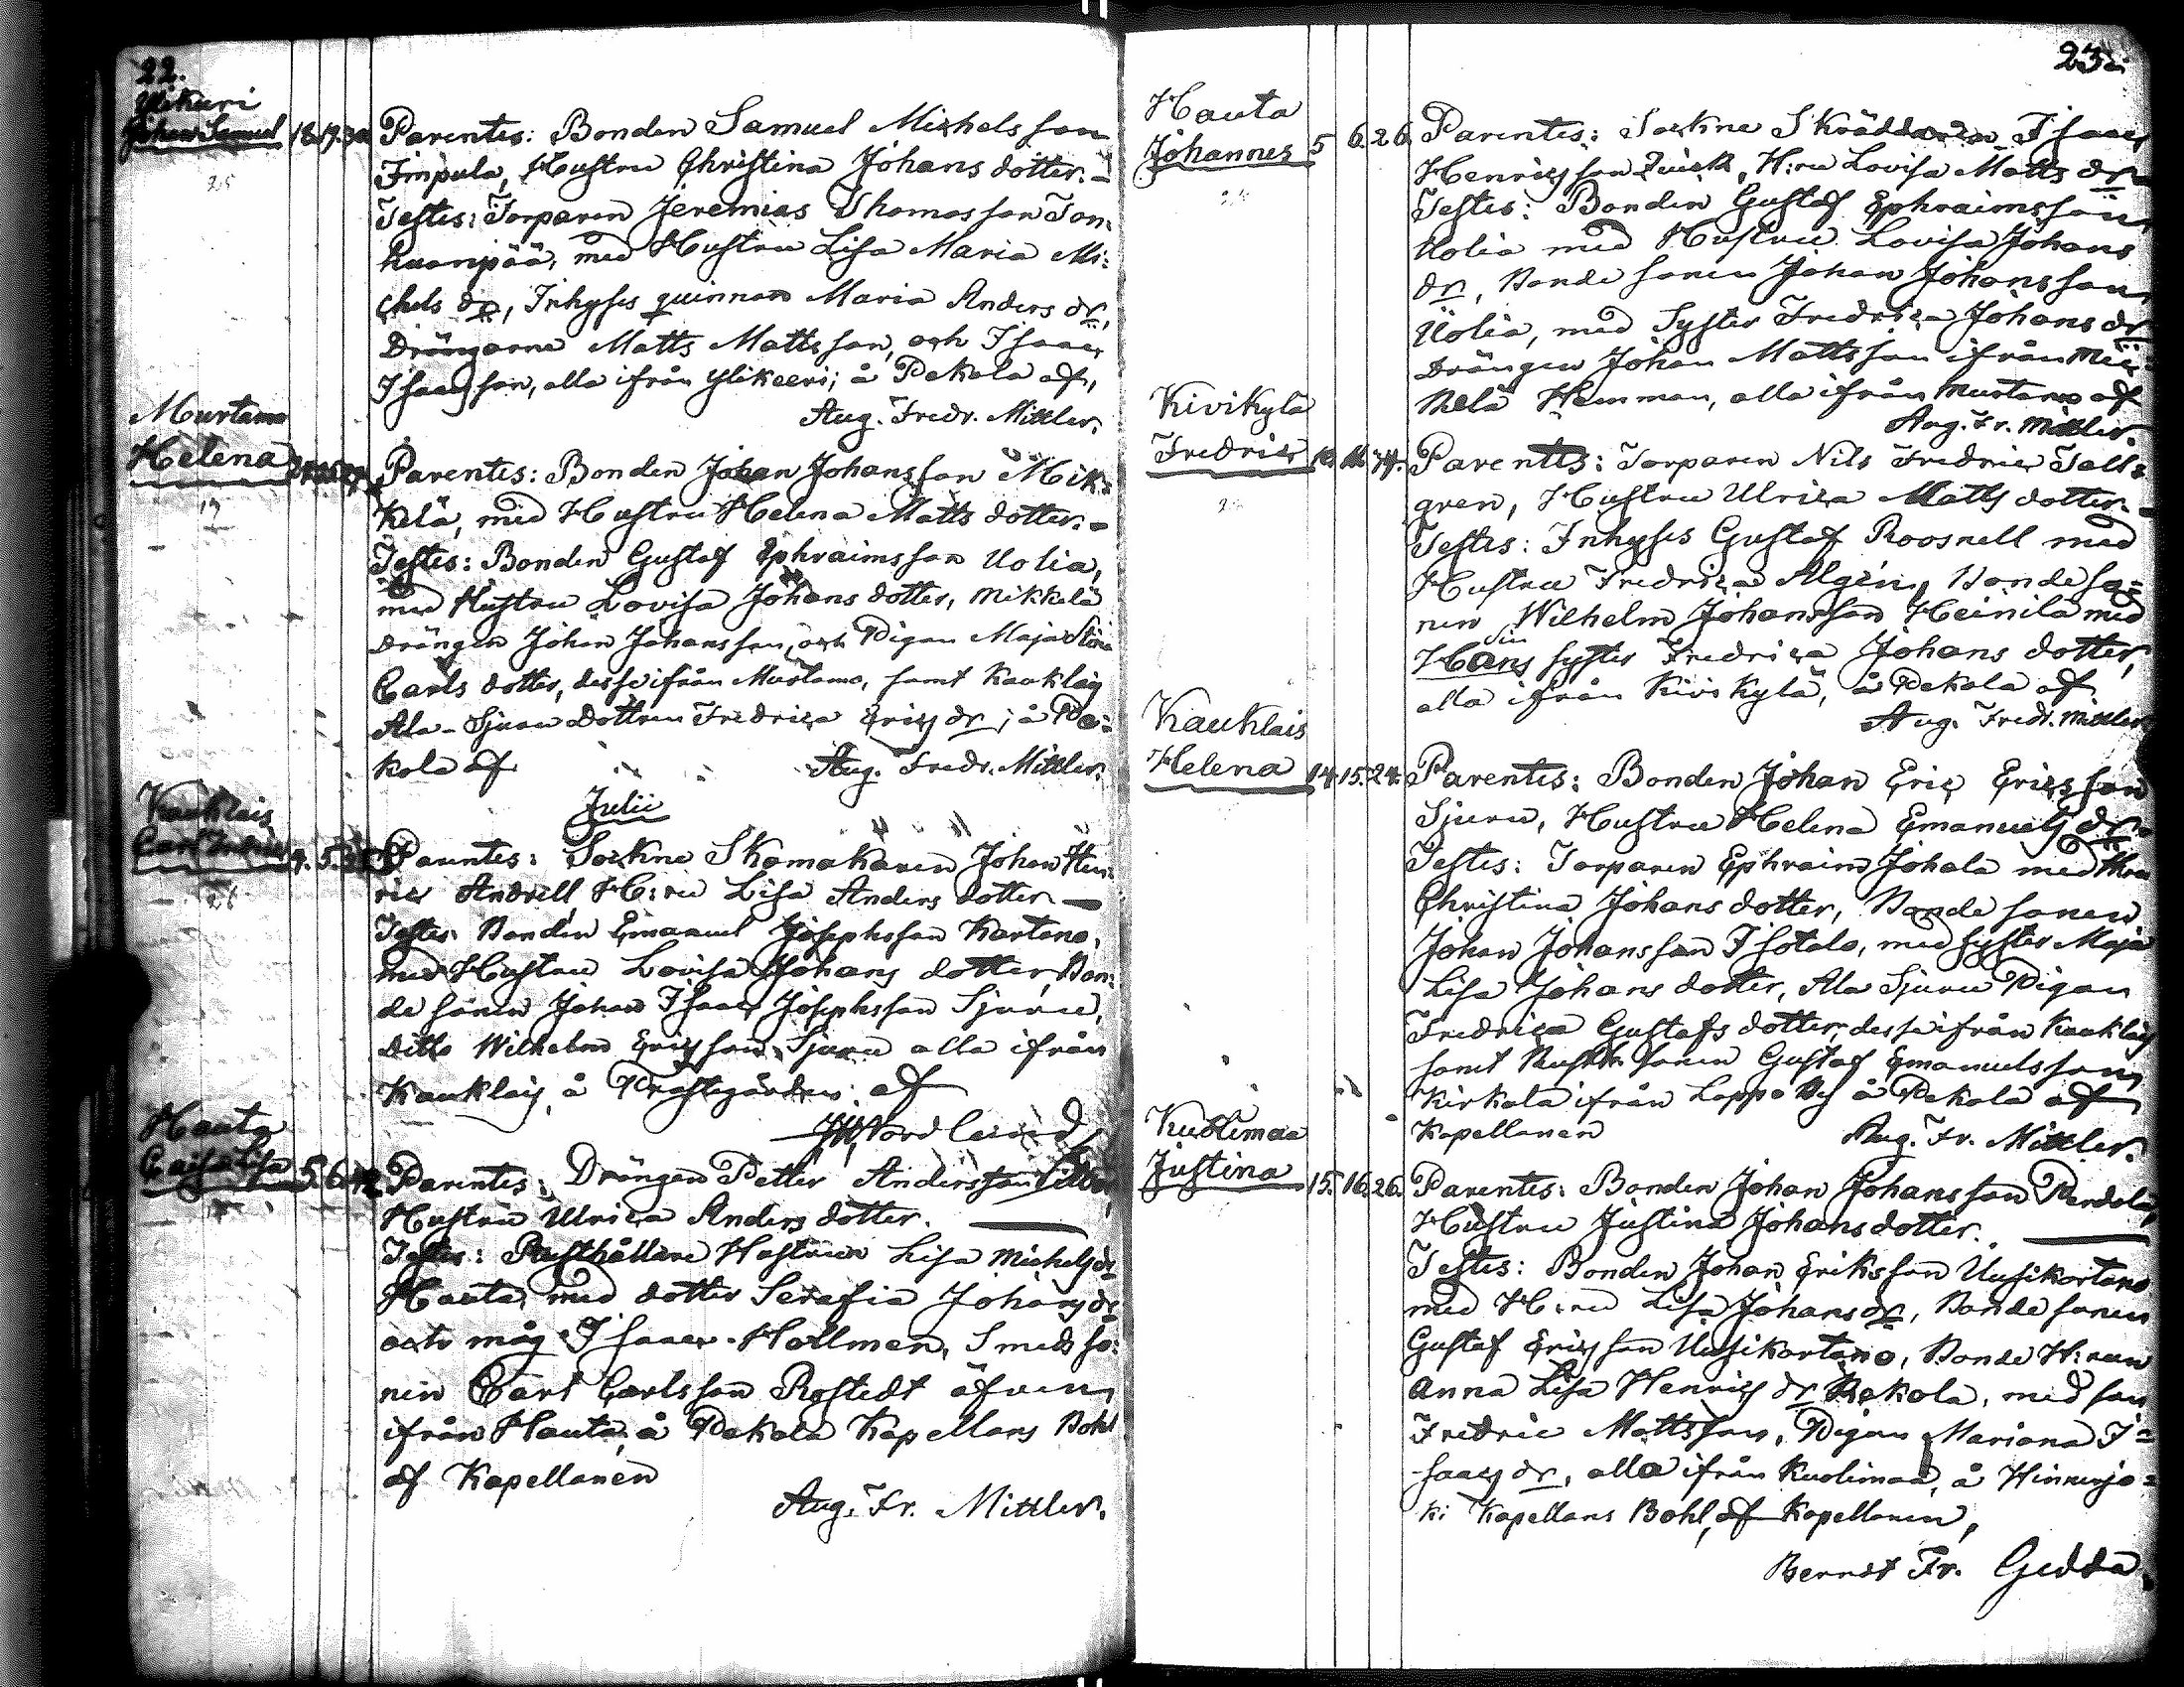 22.
Ylikuri
Johan Samuel 18. 19. 30
Parentes: Bonden Samuel Michelsson
Impula, Hustru Christina Johans dotter. -
Testes: Torparen Jeremias Thomasson Ton:
kuanpää, med Hustru Lisa Maria Mi:
chels dr, Inhyses quinnan Maria Anders dr,
Drängarne Matts Mattsson, och Isaac
Isaacsson, alla ifrån Ylikeeri; å Pekola af,
Aug. Fredr. Mittler.
Murtamo
Helena
Parentes: Bonden Johan Johansson Mik:
kelä, med Hustru Helena Matts dotter. -
Testes: Bonden Gustaf Ephraimsson Uolia,
med Hustru Lovisa Johans dotter, Mikkelä
Drängen Johan Johansson, och Pigan Maja Stina
Carls dotter, desse ifrån Murtamo, samt Kauklais
Ala-Sjuru Dottren Fredrica Erics dr; å Pe:
kola af
Aug. Fredr. Mittler.
Julii
Kauklais
Carl Fredric 4. 5.
Parentes: Sockne Skomakaren Johan Hen:
ric Andell H:ru Lisa Anders dotter -
Testes Bonden Emanuel Josephsson Kartano,
med Hustru Lovisa Johans dotter, Bon:
de sonen Johan Isaac Josephsson Sjuru,
ditto Wilhelm Ericsson Sjuru alla ifrån
Kauklais, å Prästegården af
Nordlund
Hauta
Caisa Lisa 5. 6. 42
Parentes: Drängen Petter Andersson
Hustru Ulrica Anders dotter.
Testes: Rusthållare Hustrun Lisa Michels dr
Hauta, med dotter Serafia Johans dr
och måg Isaac Hollmen, Smeds so:
nen Carl Carlsson Rostedt äfven
ifrån Hauta, å Pekola Kapellans Bohl
af Kapellanen
Aug. Fr. Mittler.
23
Hauta
Johannes 5 6. 26.
Parentes: Sockne Skräddaren Isaac
Henricsson Quick, H:ru Lovisa Matts dr -
Testes: Bonden Gustaf Ephraimsson
Uolia med Hustru Lovisa Johans
dr, Bonde sonen Johan Johansson
Uolia, med Syster Fredrica Johans dr
Drängen Johan Mattsson ifrån Mic:
kelä Hemman, alla ifrån Murtamo af
Aug. Fr. Mittler.
Kivikylä
Fredric 10. 11. 44.
Parentes: Torparen Nils Fredric Tall:
gren, Hustru Ulrica Matts dotter. -
Testes: Inhyses Gustaf Roosnell med
Hustru Fredrica Algén, Bonde so:
nen Wilhelm Johansson Heinilä med
sin
Hans syster Fredrica Johans dotter,
alla ifrån Kivikylä, å Pekola af
Aug. Fredr. Mittler
Kauklais
Helena 14. 15. 24.
Parentes: Bonden Johan Eric Ericsson
Sjuru, Hustru Helena Emanuels dr. -
Testes: Torparen Ephraim Johala med H:ru
Christina Johans dotter, Bonde sonen
Johan Johansson Isotalo, med syster Maja
Lisa Johans dotter, Ala Sjuru Pigan
Fredrica Gustafs dotter, desse ifrån Kauklais
samt Rusth: sonen Gustaf Emanuelsson
Kirkola ifrån Lappo By å Pekola af
Kapellanen
Aug. Fr. Mittler.
Kuolimaa
Justina 15. 16. 26.
Parentes: Bonden Johan Johansson Perdola,
Hustru Justina Johansdotter.
Testes: Bonden Johan Eriksson Uusikartano
med H:ru Lisa Johans dr, Bonde sonen
Gustaf Ericsson Uusikartano, Bonde H:run
Anna Lisa Henrics dr Rekola, med son
Fredric Mattsson, Pigan Mariana I=
saacs dr, alla ifrån Kuolimaa, å Hinnerjo=
ki Kapellans Bohl, af Kapellanen,
Berndt Fr. Gedda